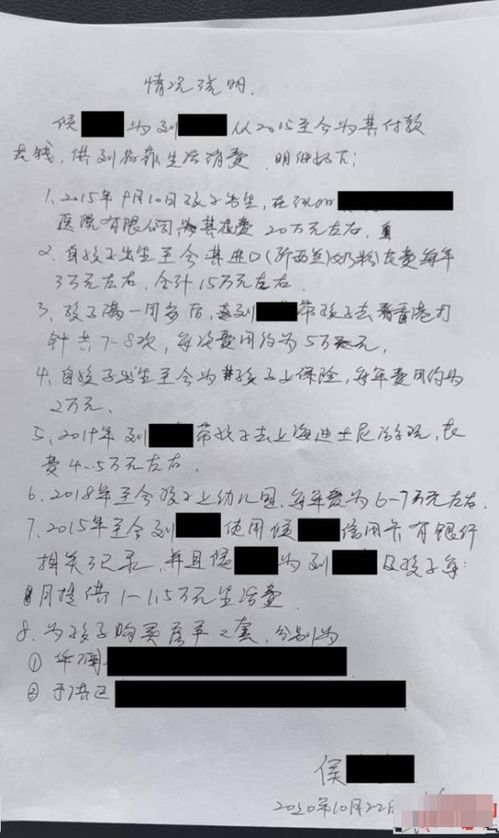 情况说明.
侯 为刘 从2015至今为其付款
花钱,供刘 生活消费,明细如下:
1、2015年9月10日孩子出生,在
医院有限公司为其花费 20万元左右.
2、自孩子出生至今其进口(新西兰)奶粉花费每年
3万元左右,合计15万元左右.
3、孩子满一周岁后,刘 带孩子去香港打
针共7-8次,每次费用约为5万元,
4、自孩子出生至今为孩子上保险,每年费用约为
2万元.
5、2019年刘 带孩子去上海迪士尼 花
费4-5万元左右.
6、2018年至今孩子上幼儿园,每年费为6-7万元左右.
7、2015年至今刘 使用侯 信用卡有银行
相关记录,并且侯 为刘 及孩子每
月提供1-1.5万元生活费
8、为孩子购买房产二套,分别为
①华润
②于洪区
侯
2020年10月22日